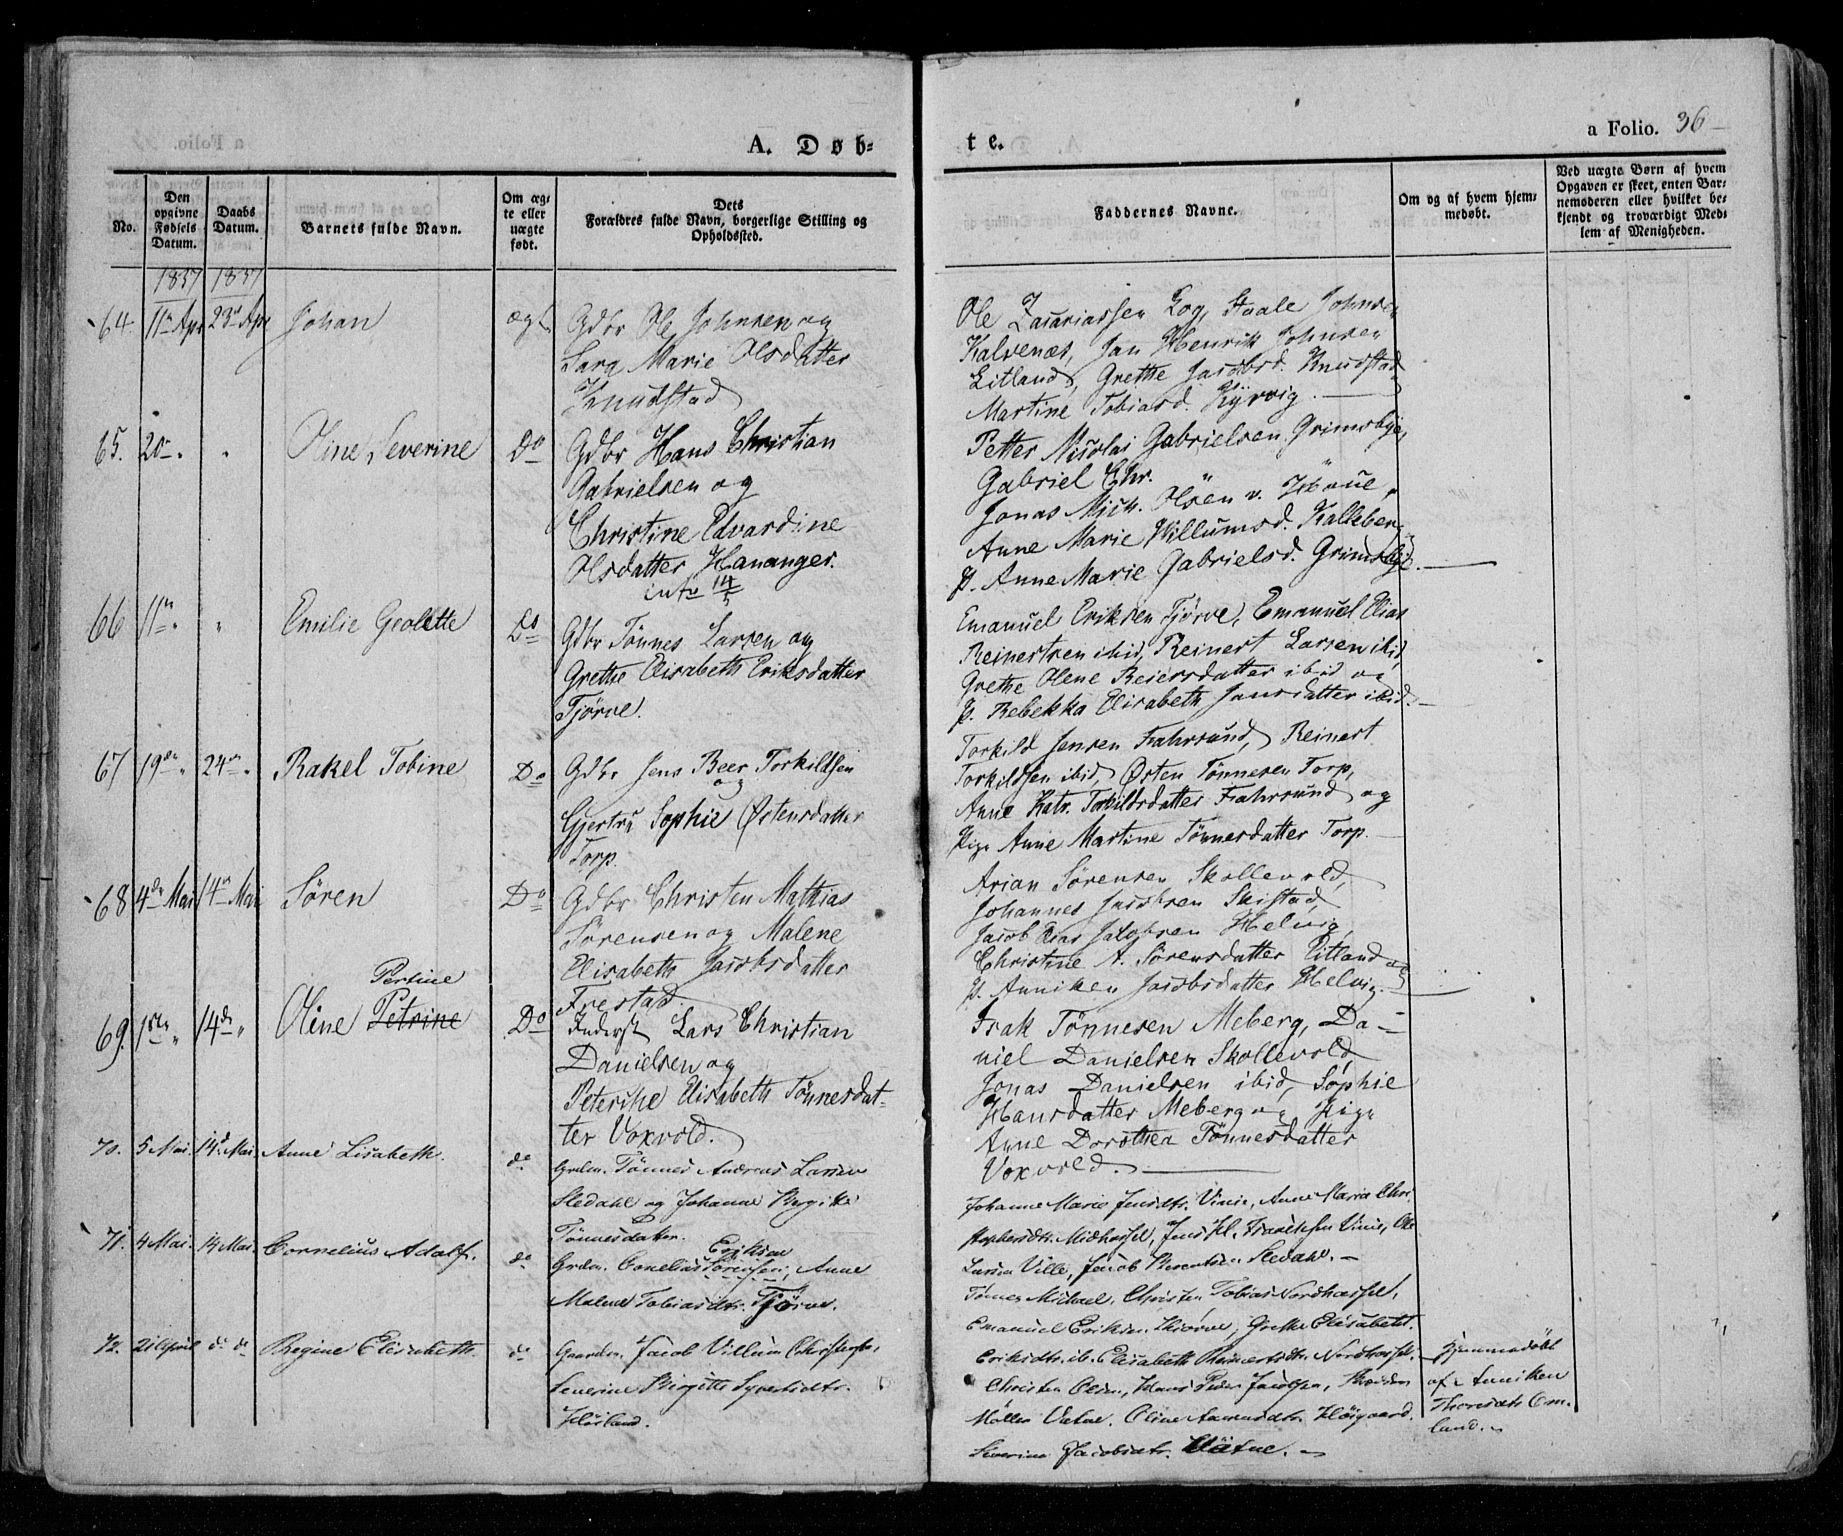 a Folio. 36
A. Døb=
te.
No.
Den opgivne Fødsels Datum.
Daabs Datum.
Barnets fulde Navn.
Om ægte eller uægte født.
Dets Forældres fulde Navn, borgerlige Stilling og Opholdssted.
Faddernes Navne.
Om og af hvem hjemmedøbt.
Ved uægte Børn af hvem Opgaven er skeet, enten Barnemoderen eller hvilket bekjendt og troværdigt Medlem af Menigheden.
1837 1837
64. 11te Apr 23de Apr Johan ægte
Gdbr Ole Johnsen og
Sara Marie Olsdatter
Knudstad
Ole Zacariassen Log, Staale Johnsen
Kalvenæs, Jan Henrik Johnsen
Eitland, Grethe Jacobsd. Knudstad
Martine Tobiasd. Kjørvig.
65. 20de " " Oline Severine Do
Gdbr Hans Christian
Gabrielsen og
Christine Edvardine
Olsdatter Hananger.
intr 14/5
Petter Nicolai Gabrielsen Grimsbye,
Gabriel Chr. " "
Jonas Mich. Olsen v. Haue,
Anne Marie Willumsd. Kalleberg
P. Anne Marie Gabrielsd. Grimsbye.
66 11te " " Emilie Geolette Do
Gdbr Tønnes Larsen og
Grethe Elisabeth Eriksdatter
Tjørve.
Emanuel Eriksen Tjørve, Emanuel Elias
Reinertsen ibid, Reinert Larsen ibid,
Grethe Olene Reiersdatter ibid og
P. Rebekka Elisabeth Jansdatter ibid.
67 19de " 24de " Rakel Tobine Do
Gdbr Jens Beer Torkildsen
og
Gjertru Sophie Østensdatter
Torp.
Torkild Jensen Fahrsund, Reinert
Torkildsen ibid, Østen Tønnesen Torp,
Anne Katr. Torkildsdatter Fahrsund og
Pige Anne Martine Tønnesdatter Torp.
68 4de Mai 14de Mai Søren Do
Gdbr Christen Mathias
Sørensen og Malene
Elisabeth Jacobsdatter
Frestad.
Arian Sørensen Skollevold,
Johannes Jacobsen Skistad,
Jacob Elias Jakobsen Helvig,
Christine A. Sørensdatter Eitland og
P. Anniken Jacobsdatter Helvig.
Pertine
69. 1ste " 14de " Oline Petrine Do
Inderst Lars Christian
Danielsen og
Petersche Elisabeth Tønnesdat-
ter Voxvold.
Isak Tønnesen Meberg, Da-
niel Danielsen Skollevold,
Jonas Danielsen ibid, Sophie
Hansdatter Meberg og Pige
Anne Dorothea Tønnesdatter
Voxvold.
70. 5 Mai. 14de Mai. Anne Lisabeth. do
Grdm. Tønnes Andreas Larsen
Sledahl og Johanne Birgitte
Tønnesdatter.
Johanne Marie Jensdtr. Vinie, Anne Maria Chri-
stophersdtr. Midhassel, Jens Hl. Frantzsen Vinie, Ole
Larsen Ville, Jacob Berentsen Sledahl.
71. 4 Mai. 14 Mai. Cornelius Adolf. do
Eriksen
Grdm. Cornelius Sørensen, Anne
Malene Tobiasdtr. Tjörve.
Tønnes Michael, Christen Tobias Nordhassel,
Emanuel Eriksen Tjörve, Grethe Elisabeth
Eriksdtr. ib. Elisabeth Reinertsdtr. Nordhassel.
72. 21 April do do Regine Elisabeth. do
Gaardm. Jacob Villum Christensen,
Severine Birgitte Syvertsdtr.
Huseland.
Christen Olsen, Hans Peder Jacobsen,
Møller Vatne, Oline Aanensdtr. Höigaard.
Severine Jacobsdtr. Vatne.
Hjemmedöbt
af Anniken
Thoresdtr. Om-
land.